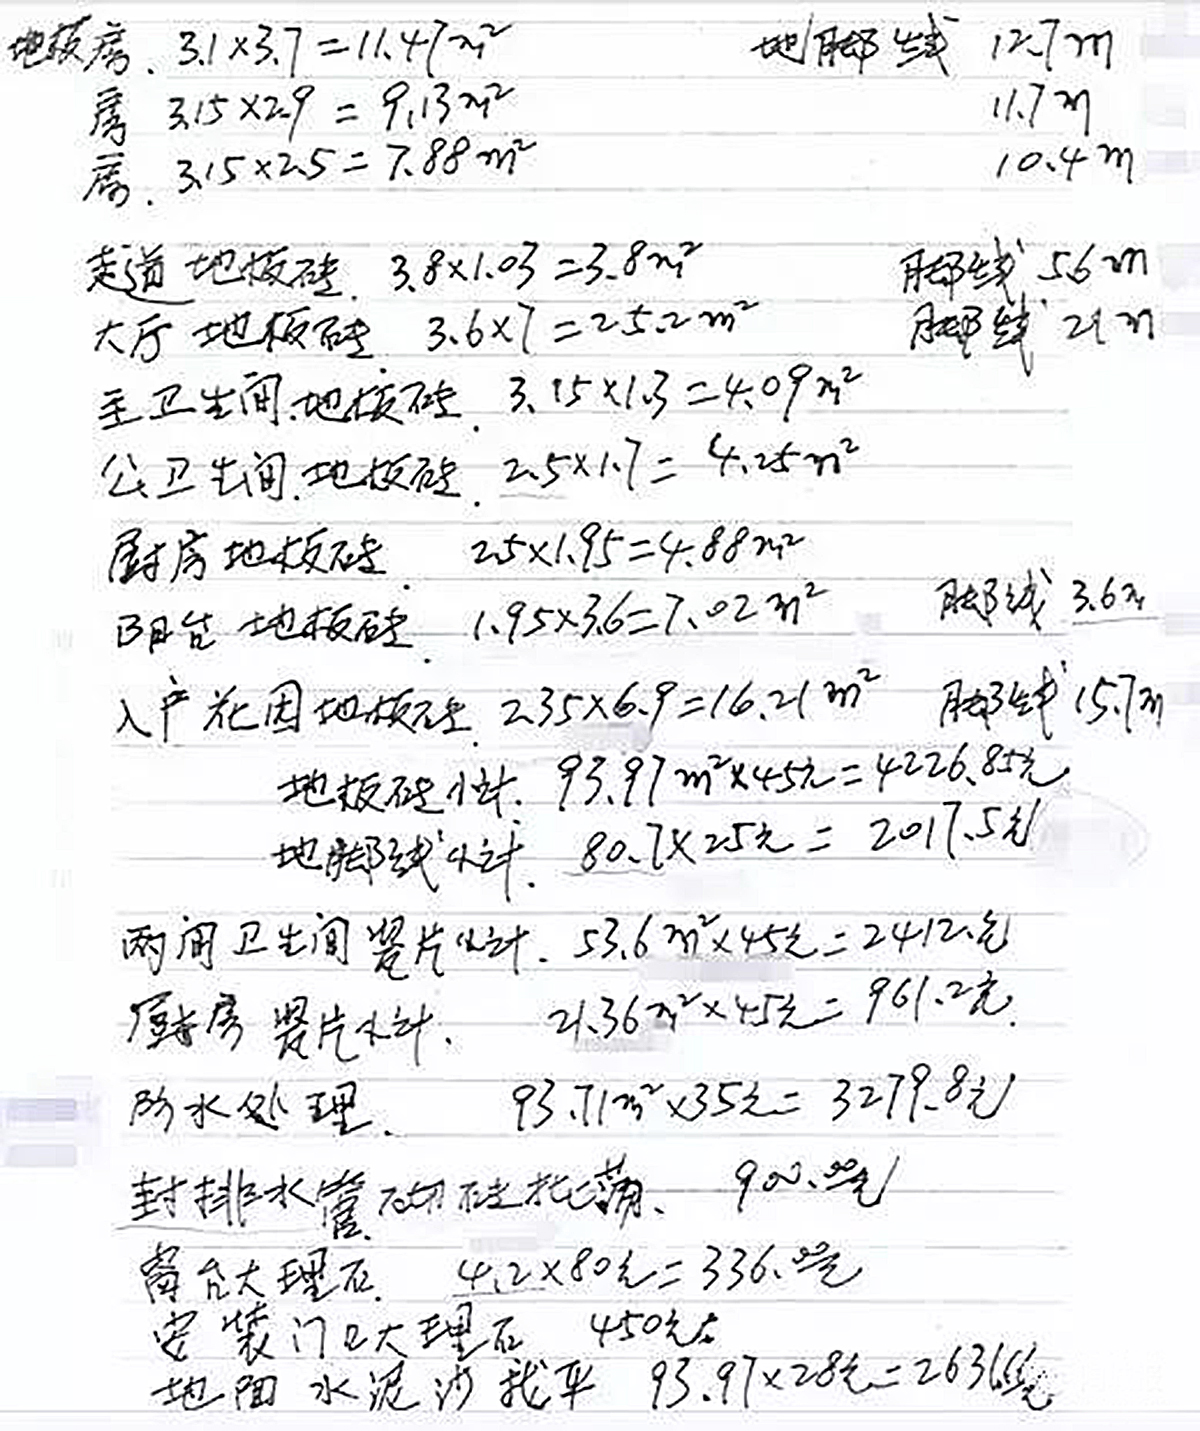 地板房. 3.1×3.7=11.47m² 地脚线 12.7m
房 3.15×2.9=9.13m² 11.7m
房. 3.15×2.5=7.88m² 10.4m
走道地板砖. 3.8×1.03=3.8m² 脚线 5.6m
大厅地板砖. 3.6×7=25.2m² 脚线 21m
主卫生间.地板砖. 3.15×1.3=4.09m²
公卫生间.地板砖. 2.5×1.7=4.25m²
厨房地板砖. 2.5×1.95=4.88m²
阳台地板砖. 1.95×3.6=7.02m² 脚线 3.6m
入户花园地板砖. 2.35×6.9=16.21m² 脚线 15.7m
地板砖小计. 93.97m²×45元=4226.85元
地脚线小计. 80.7×25元=2017.5元
两间卫生间瓷片小计. 53.6m²×45元=2412.元
厨房瓷片小计. 21.36m²×45元=961.2元.
防水处理. 93.71m²×35元=3279.8元
封排水管 切砖 900.00元
窗台大理石. 4.2×80元=336.00元
安装门口大理石 450元
地面水泥沙找平 93.97×28元=